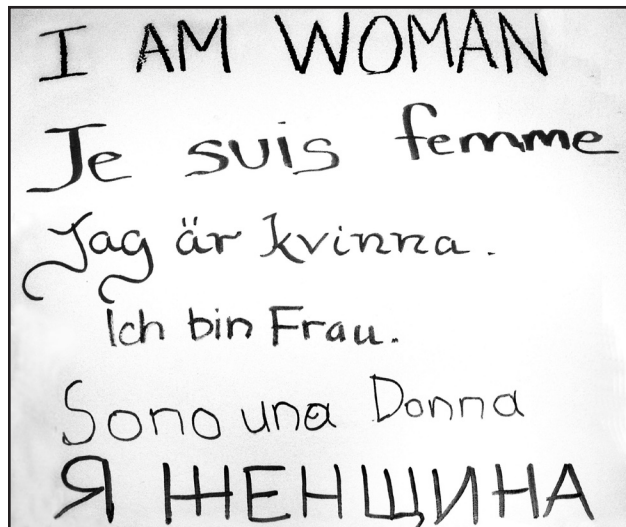 I AM WOMAN
Je suis femme
Jag är kvinna.
Ich bin Frau.
Sono una Donna
Я ЖЕНЩИНА